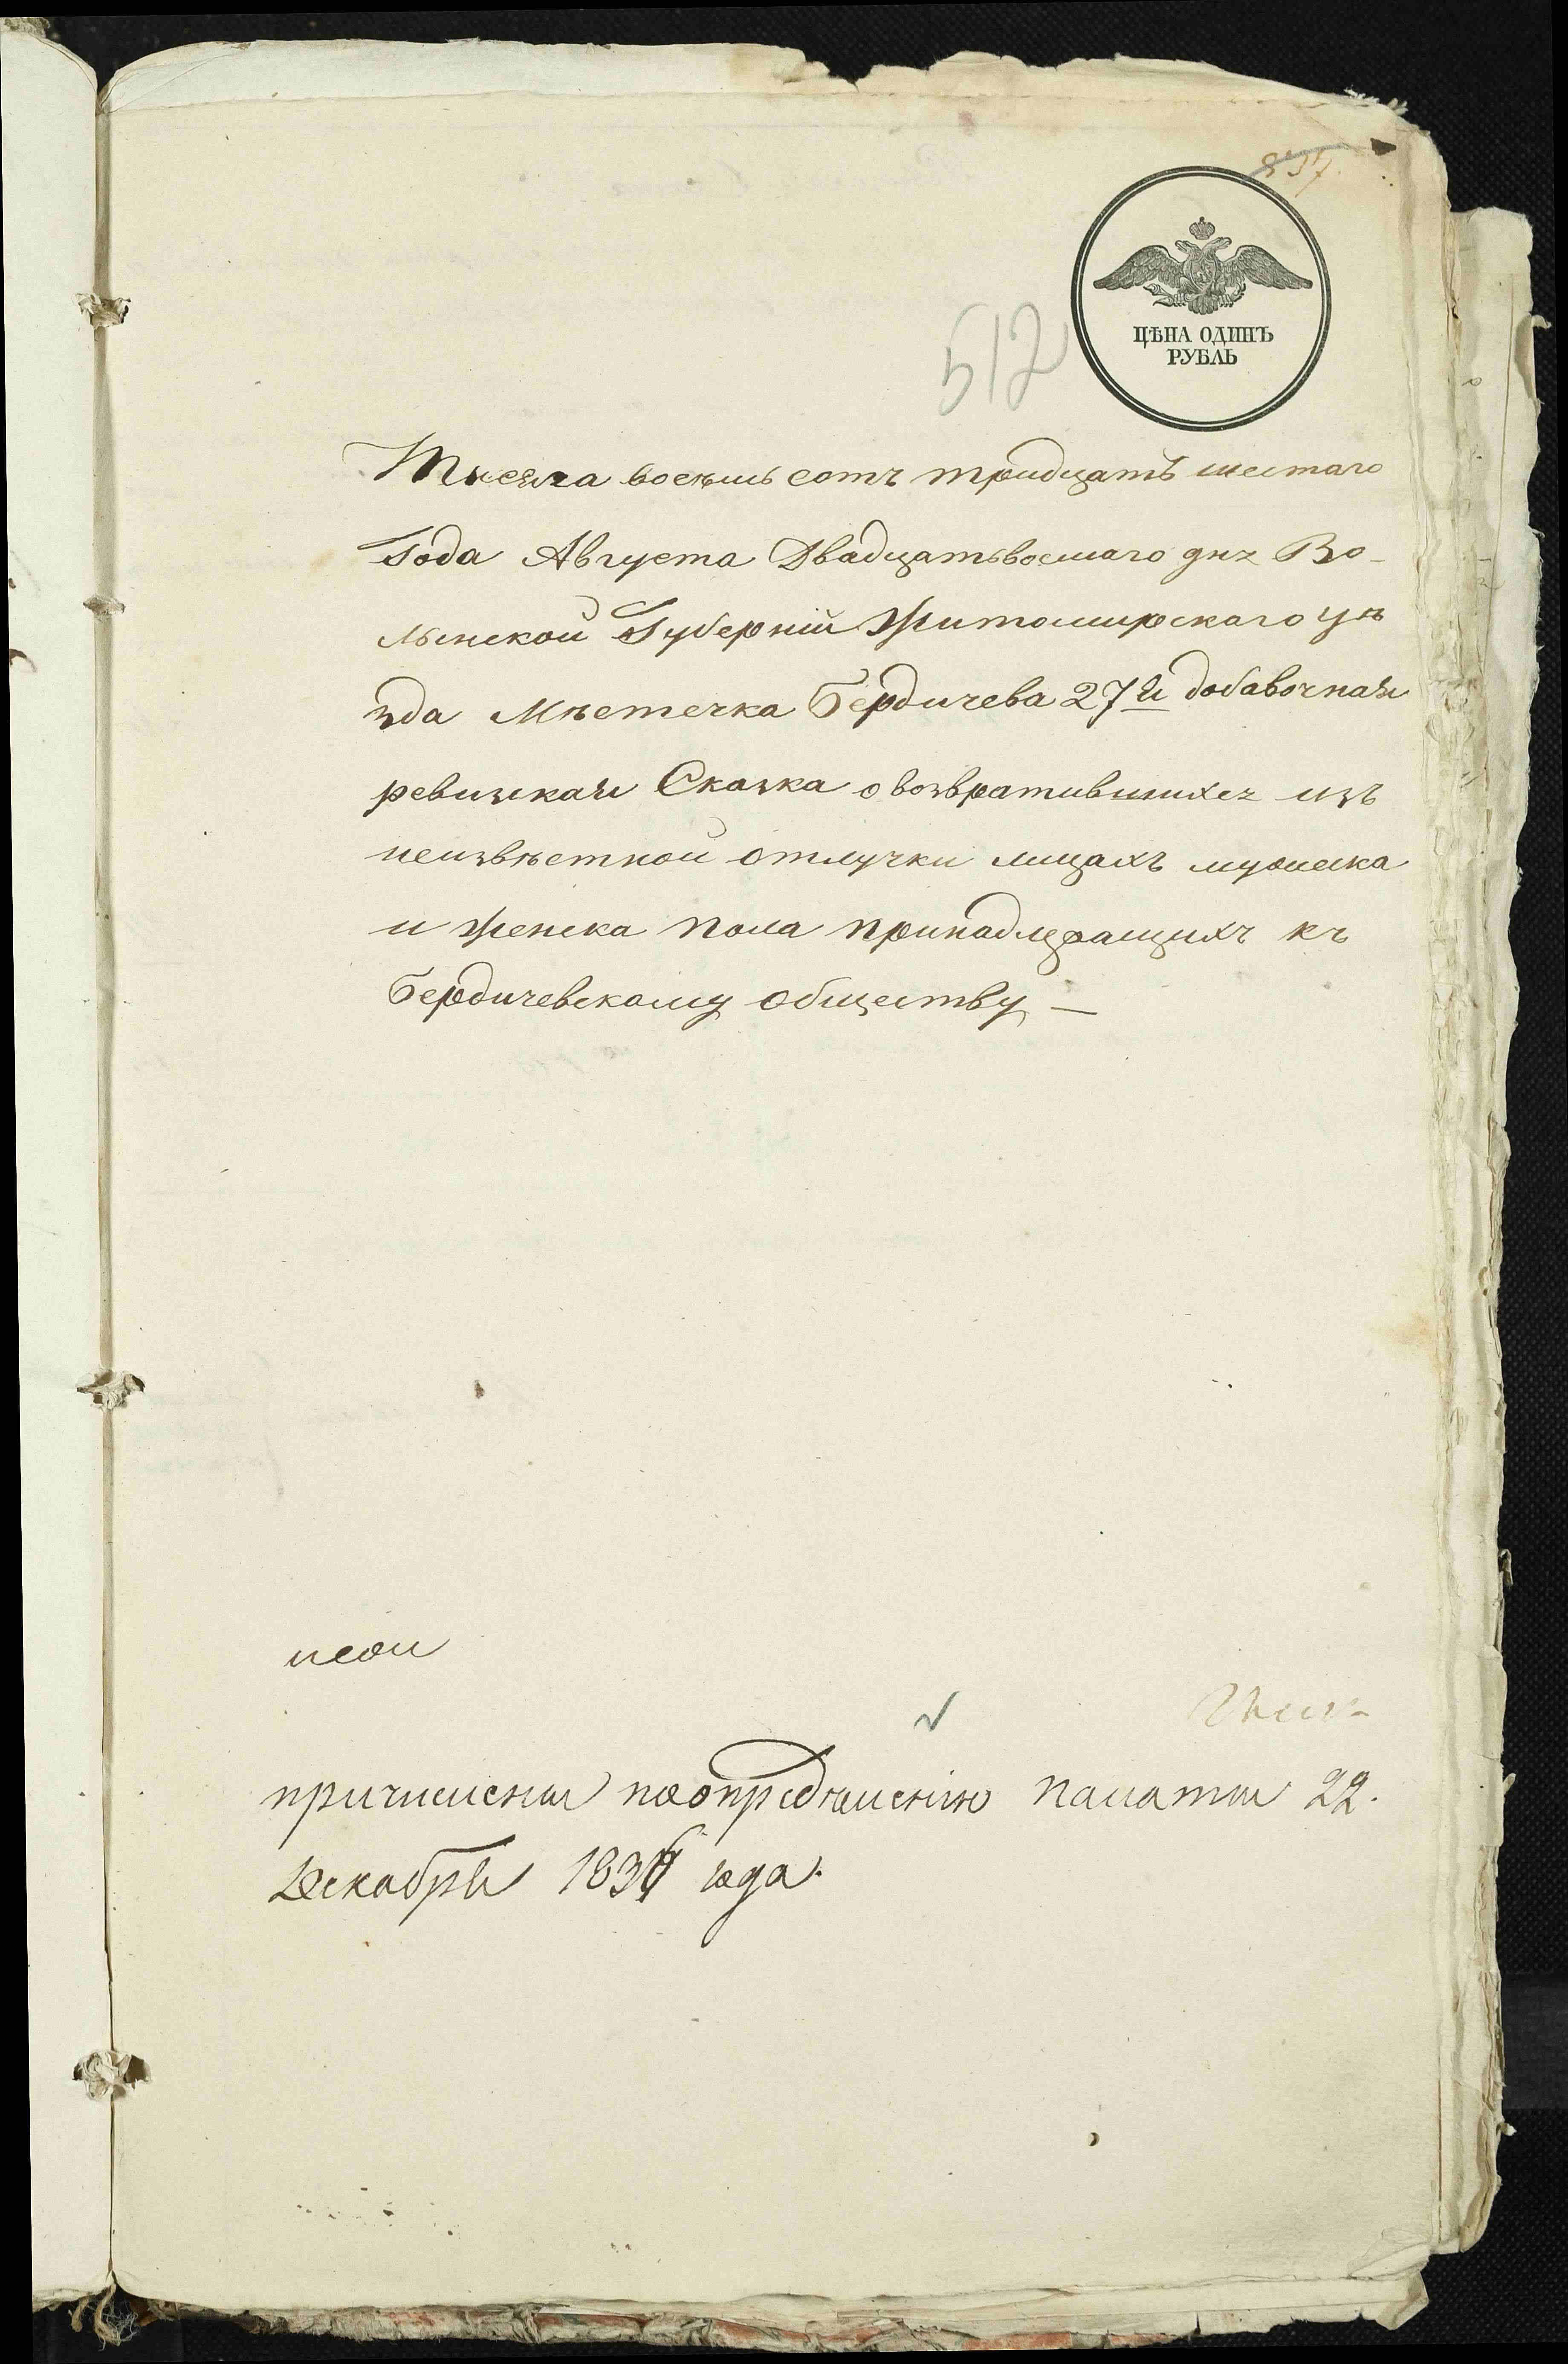 837.
ЦѢНА ОДИНЪ
РУБЛЬ
512
Тысяча восѣмь сотъ тридцать шестаго
Года Августа Двадцатьвосмаго дня Во-
лынской Губерніи Житомирскаго уѣ
зда Мѣстечка Бердичева 27я добавочная
ревизская Сказка о возвратившихся изъ
неизвѣстной отлучки лицахъ мужеска
и женска пола принадлежащихъ къ
Бердичевскому обществу —
причислены по опредѣленію палаты 22.
Декабря 1836 года.